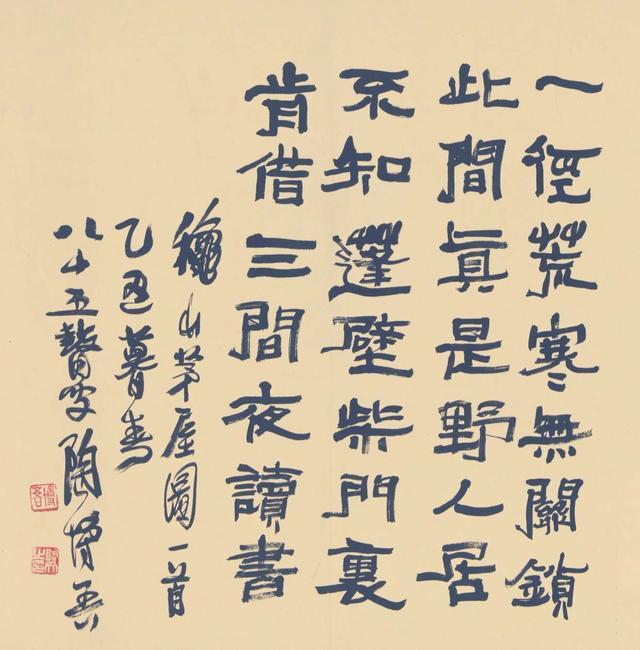 一徑荒寒無關鎖
此間眞是野人居
不知蓬壁柴門裏
肯借三間夜讀書
穐山茅屋圖一首
乙丑暮春
八十五瞽叟陶博吾